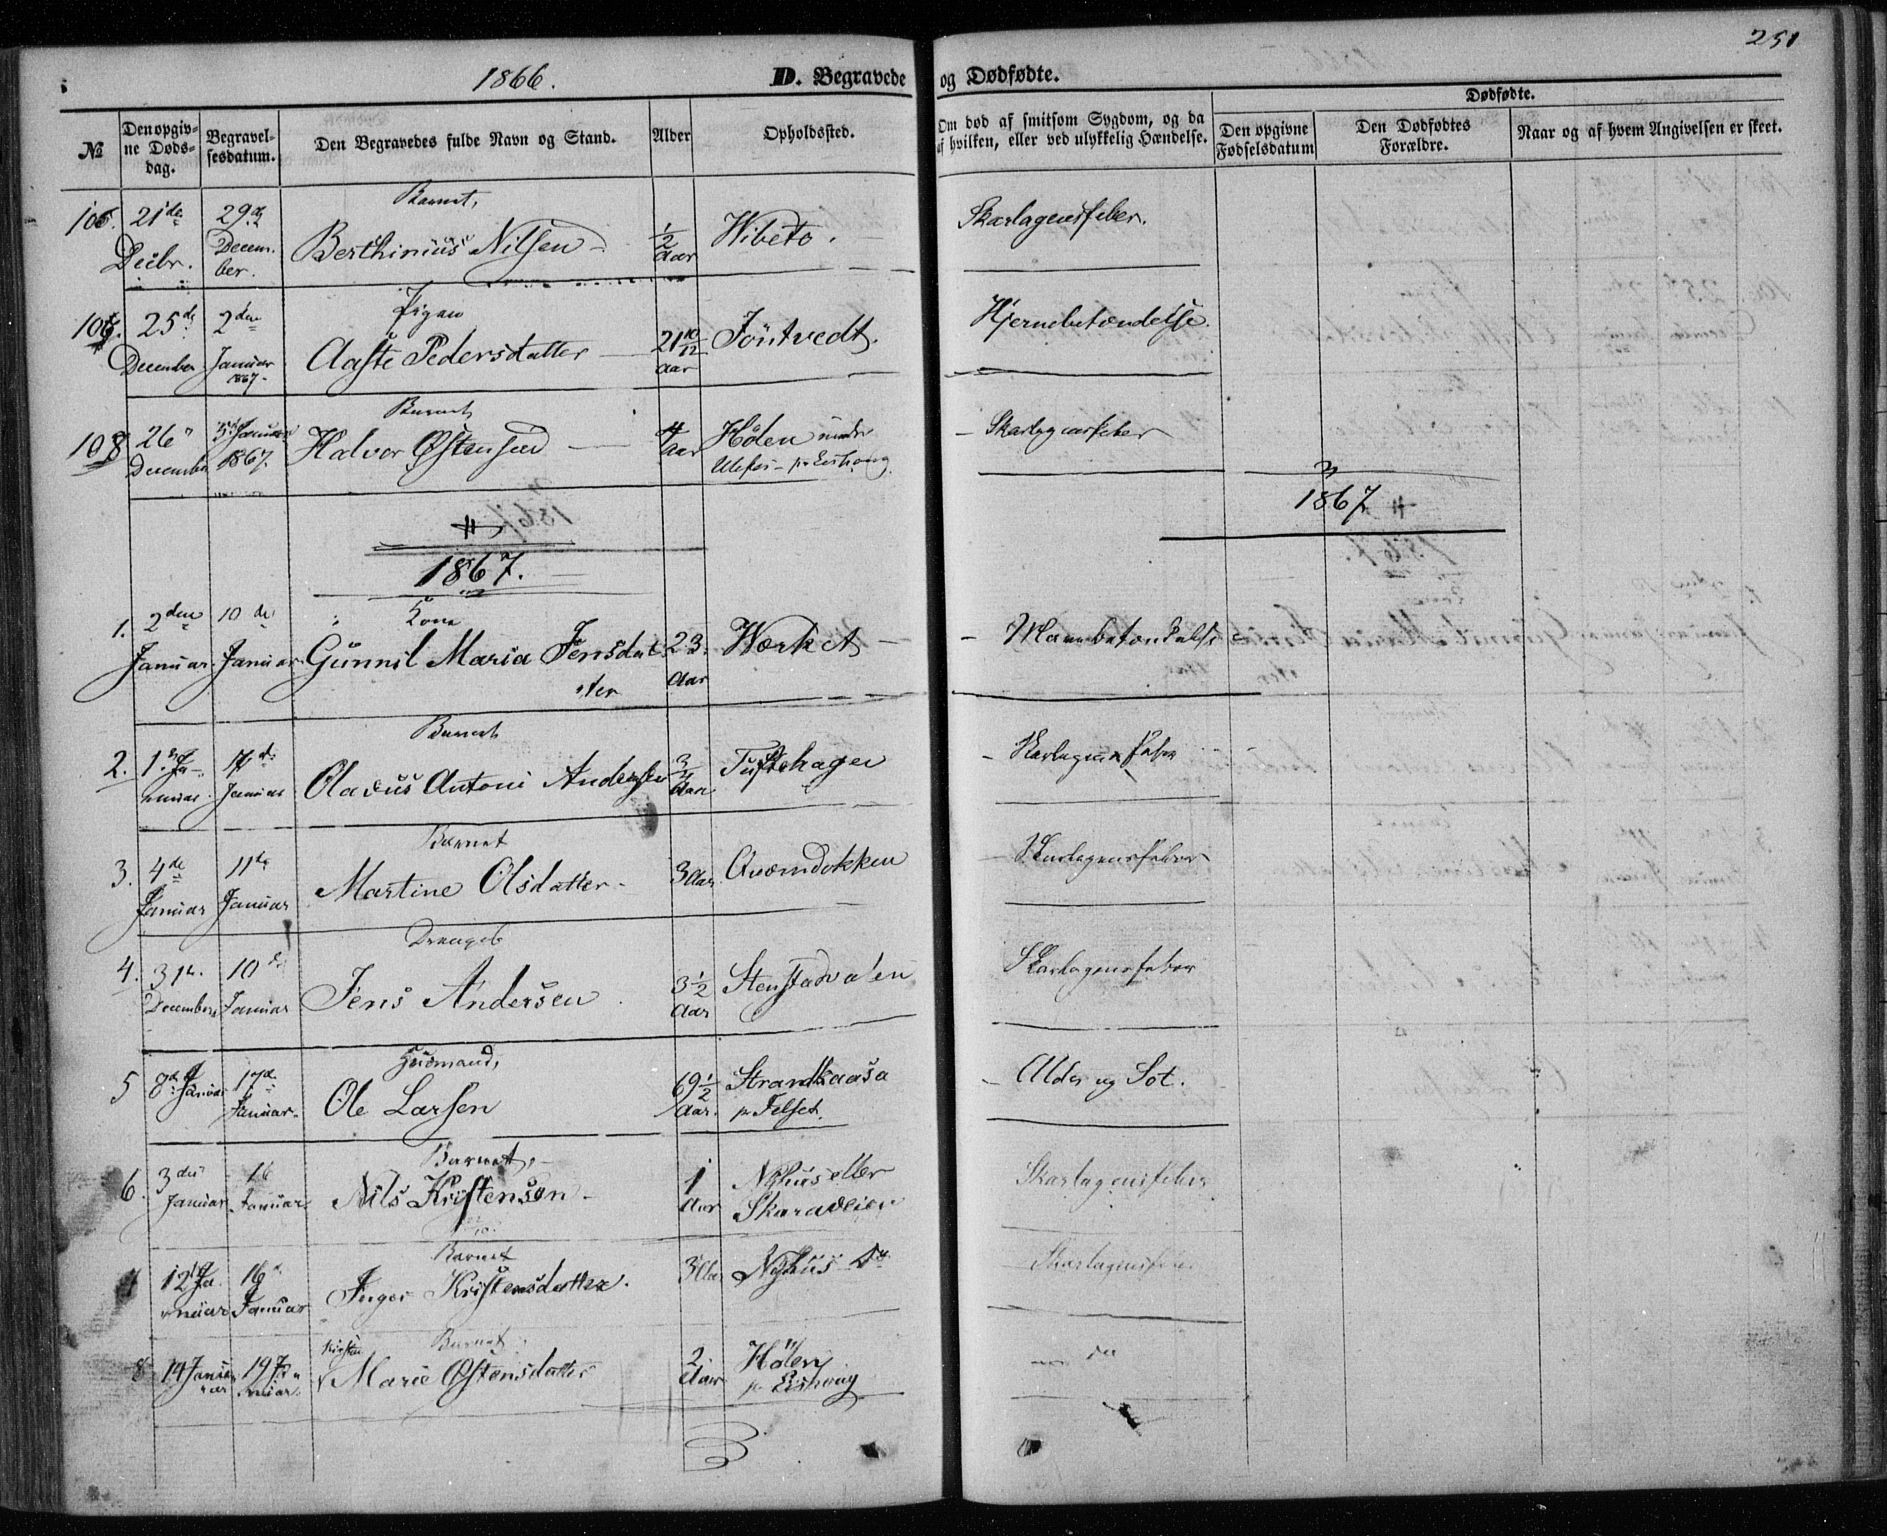 1866.
D. Begravede og Dødfødte.
251
№
Den opgivne Dødsdag.
Begravelsesdatum.
Den Begravedes fulde Navn og Stand.
Alder
Opholdssted.
Om død af smitsom Sygdom, og da af hvilken, eller ved ulykkelig Hændelse.
Dødfødte.
Den opgivne Fødselsdatum
Den Dødfødtes Forældre.
Naar og af hvem Angivelsen er skeet.
106. 21de Decbr. 29de December. Barnet, Berthinius Nilsen ½ Aar Wibeto. Skarlagensfeber.
25de December 2den Januar 1867. Pigen Aaste Pedersdatter 21 10/12 Aar Jøntvedt. Hjernebetændelse.
108 26 December Januar 1867. Barnet Halvor Østensen 4 Aar Holen under Ulefos Skarlagensfeber
1867.
1867
1. 2den Januar. 10de Januar Kone Gunnil Maria Jensdatter 23. Aar Værket
2. 1ste Januar 17de Januar Barnet Olavus Antoni Andersen ¾ Aar Tuftehagen Skarlagensfeber
3. 4de Januar 11te Januar Barnet Martine Olsdatter 3 Aar. Qværndokken Skarlagensfeber
4. 31te December 10de Januar Drengeb Jens Andersen 3½ Aar Stenstadvalen Skarlagensfeber
5 8de Januar 17de Januar. Husmand, Ole Larsen 69½ Aar. Strandkaasa p. Felset. Alder og Sot.
6. 3die Januar 16 Januar Barnet, Nils Kristensen 1 Aar Nyhus eller Skaraveien Skarlagensfeber
7 12te Januar 16de Januar Barnet Inger Kristensdatter. 3 Aar Nyhus do Skarlagensfeber
8 14 Januar 19 Januar. Barnet Kirsten Marie Østensdatter 2. Aar Holen do